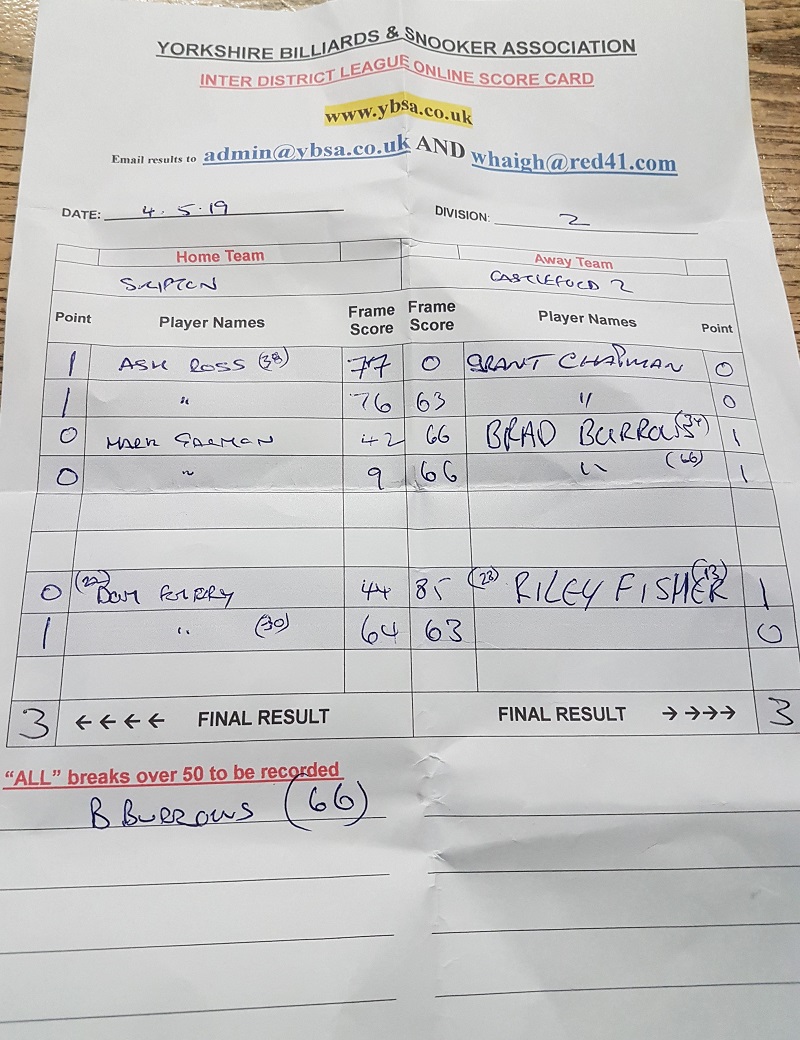 YORKSHIRE BILLIARDS & SNOOKER ASSOCIATION
INTER DISTRICT LEAGUE ONLINE SCORE CARD
www.ybsa.co.uk
Email results to admin@ybsa.co.uk AND whaigh@red41.com
DATE: 4.5.19 DIVISION: 2
Home Team Away Team
SKIPTON CASTLEFORD 2
Point Player Names Frame Score Frame Score Player Names Point
1 ASH ROSS (38) 77 0 GRANT CHAPMAN 0
1 " 76 63 " 0
0 MARK 42 66 BRAD BURROWS (34) 1
0 " 9 66 " (66) 1
0 (22) DOM 44 85 (23) RILEY FISHER (13) 1
1 " (30) 64 63 0
3 ←←←← FINAL RESULT FINAL RESULT →→→→ 3
“ALL” breaks over 50 to be recorded
B BURROWS (66)